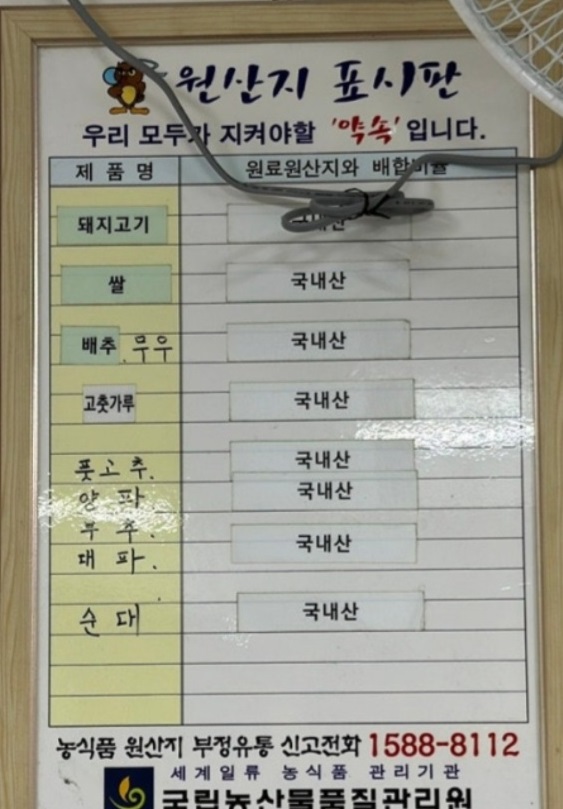 원산지 표시판
우리 모두가 지켜야할 '약속' 입니다.
제 품 명 원료원산지와 배합비율
돼지고기 국내산
쌀 국내산
배추 무우 국내산
고춧가루 국내산
풋고추. 국내산
양파 국내산
부추.
대파. 국내산
순대 국내산
농식품 원산지 부정유통 신고전화 1588-8112
세계일류 농식품 관리기관
국립농산물품질관리원